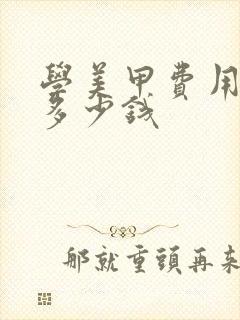 學美甲費用
多少錢
那就重頭再來